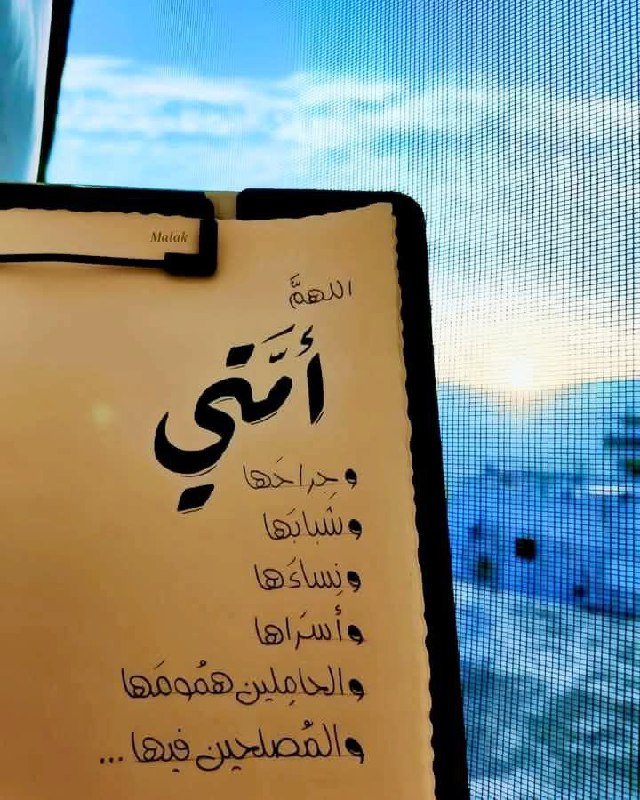 Malak
اللهمَّ
أمَّتي
وجِراحَها
وشَبابَها
ونِساءَها
وأسرَاها
والحامِلين همُومَها
والمُصلحين فيها ...